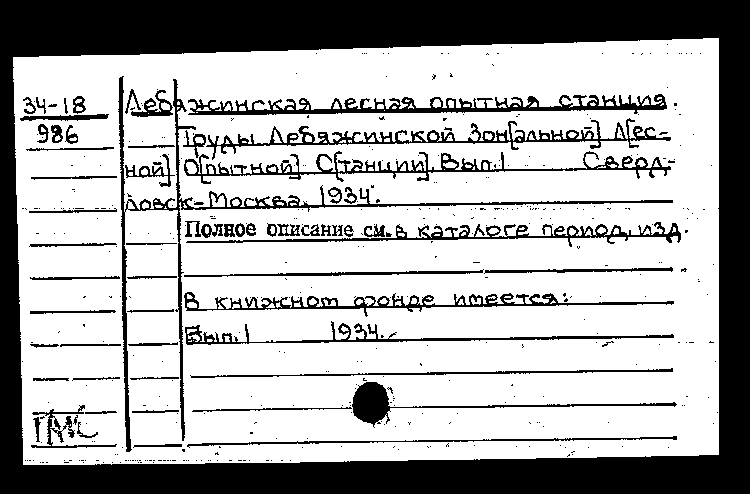 34-18 Лебяжинская лесная опытная станция.
986 Труды Лебяжинской Зон[альной] Л[ес-
ной] О[пытной] С[танции]. Вып.1 Сверд-
ловск-Москва, 1934.
Полное описание см. в каталоге период. изд.
В книжном фонде имеется:
Вып.1 1934.-